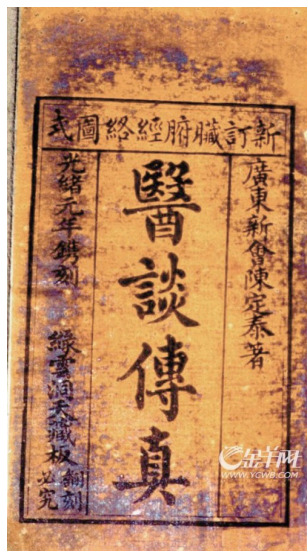 新訂臟腑經絡圖式
廣東新會陳定泰著
醫談傳真
光緒元年鐫刻
綠雲洞天藏板
翻刻
必究
金羊网
WWW.YCWB.COM